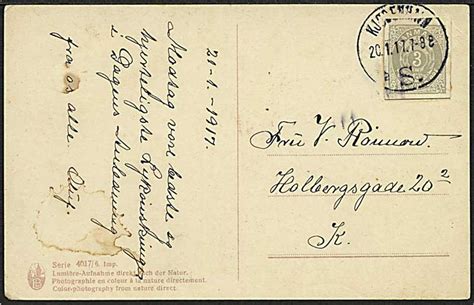 21-1-1917.
Modtag vore bedste og
hjerteligste Lykønskninger
i Dagens Anledning
fra os alle. Oluf.
KJØBENHAVN
20.1.17.7-8 E
S.
3
Fru V. Rönnow.
Holbergsgade 20²
K.
Serie 4017/6. Imp.
Lumière-Aufnahme direkt nach der Natur.
Photographie en couleur à la nature directement.
Color-photography from nature direct.